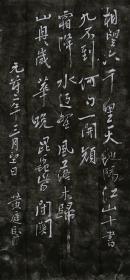 相望六千里天地隔江山十書
九不到何用一開顏
霜降水返壑風落木歸
山冉歲華晚昆蟲皆閉關
元符年二月日黃庭堅